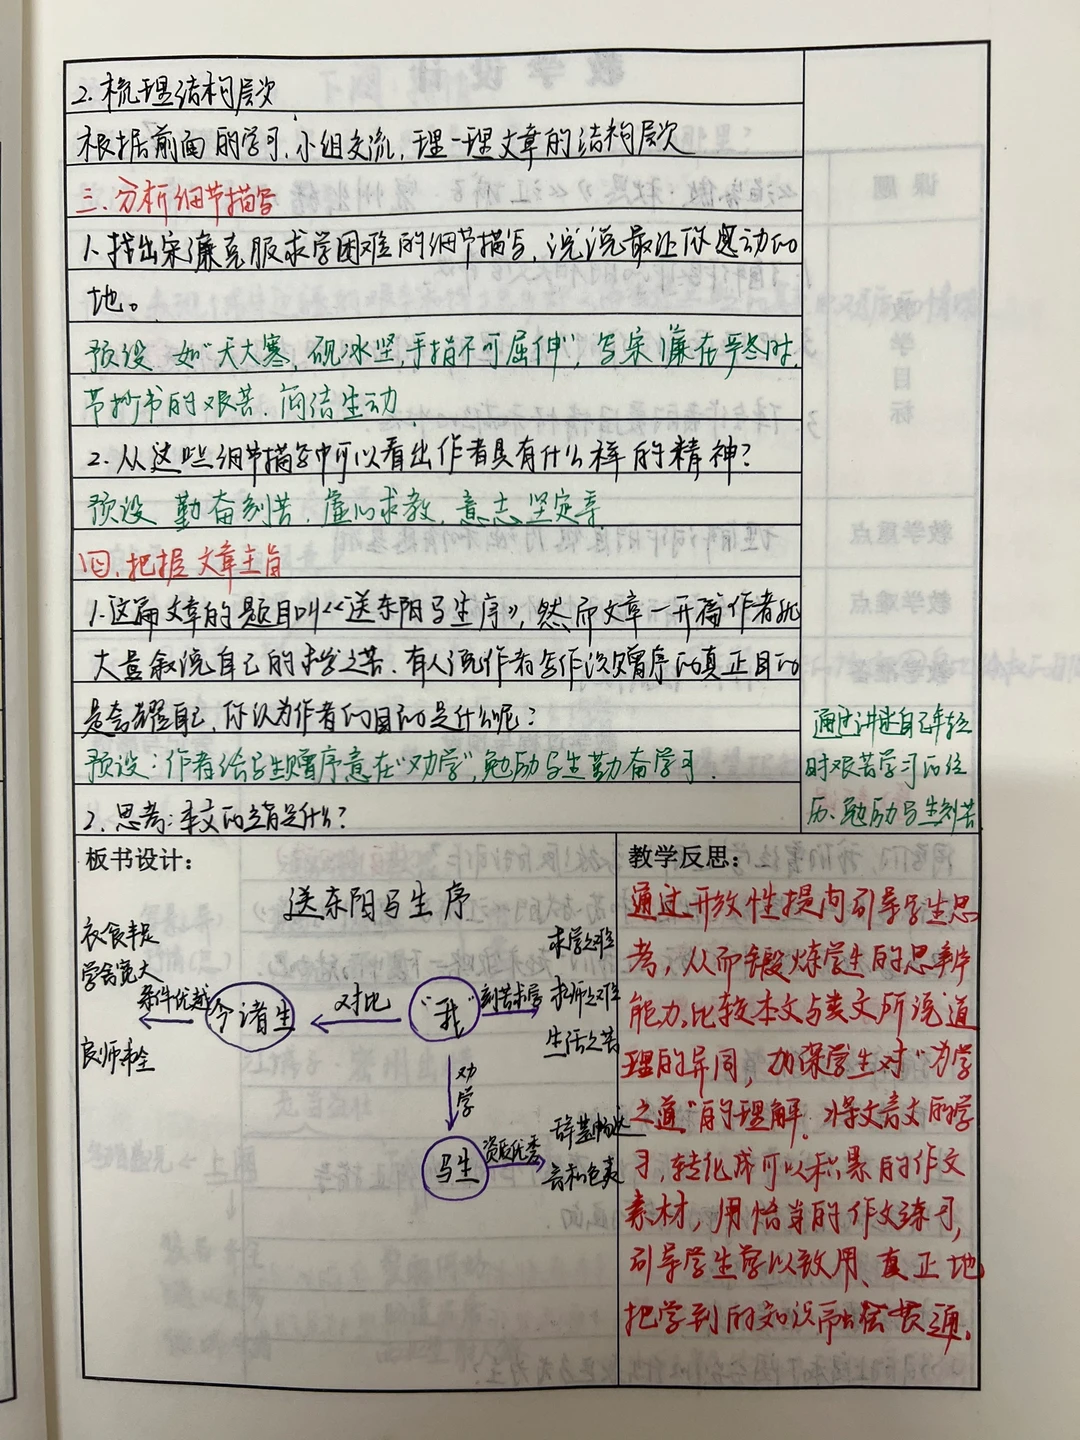 2.梳理结构层次
根据前面的学习,小组交流,理一理文章的结构层次
三.分析细节描写
1.找出宋濂克服求学困难的细节描写,说说最让你感动的
地。
预设 如“天大寒,砚冰坚,手指不可屈伸”,写宋濂在严冬时
节抄书的艰苦.简洁生动
2.从这些细节描写中可以看出作者具有什么样的精神?
预设 勤奋刻苦,虚心求教,意志坚定等
四.把握文章主旨
1.这篇文章的题目叫《送东阳马生序》,然而文章一开篇作者就
大量叙说自己的求学之苦.有人说作者写作这次赠序的真正目的
是夸耀自己,你认为作者的目的是什么呢?
预设:作者给马生赠序意在“劝学”,勉励马生勤奋学习.
2.思考:本文的主旨是什么?
通过讲述自己年轻
时艰苦学习的经
历.勉励马生刻苦
板书设计:
送东阳马生序
衣食丰足
学舍宽大
良师齐全
条件优越
今诸生
对比
“我”
刻苦求学
求学之难
求师之难
生活之苦
劝
学
马生
资质优秀
辞甚畅达
言和色夷
教学反思:
通过开放性提问引导学生思
考,从而锻炼学生的思辨
能力。比较本文与类文所说道
理的异同,加深学生对“为学
之道”的理解.将文言文的学
习,转化成可以积累的作文
素材,用恰当的作文练习,
引导学生学以致用、真正地
把学到的知识融会贯通.